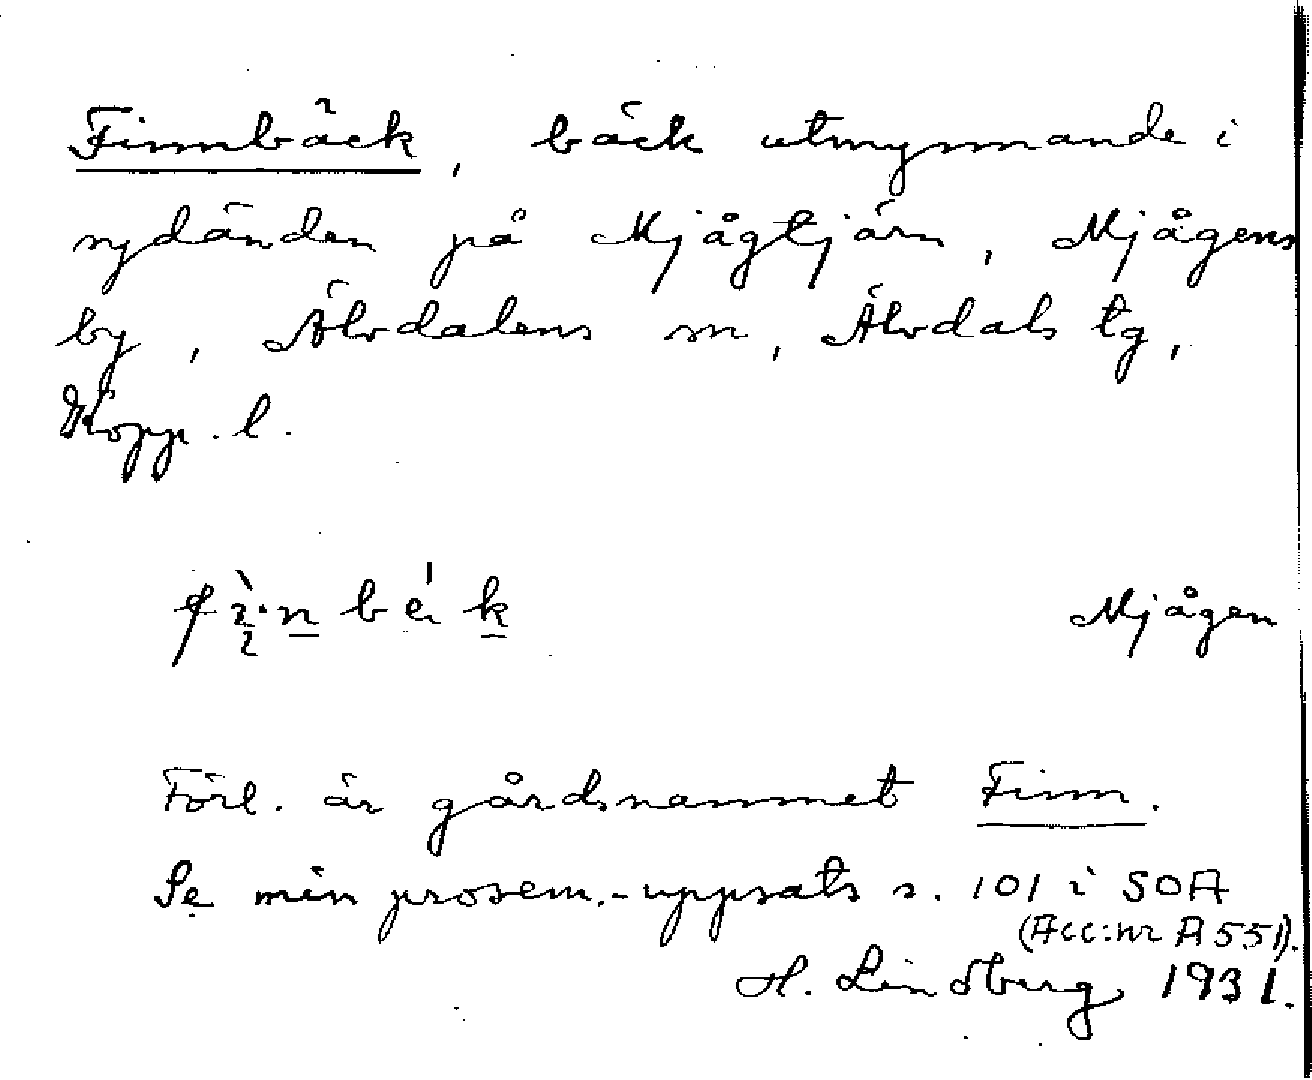 Finnbäck, bäck utmynnande i
sydänden på Mjågtjärn, Mjågens
by, Älvdalens sn, Älvdals tg,
Kopp. l.
Mjågen
Förl. är gårdsnamnet Finn.
Se min prosem.-uppsats s. 101 i SOA
(Acc:nr A 551).
H. Lindberg 1931.